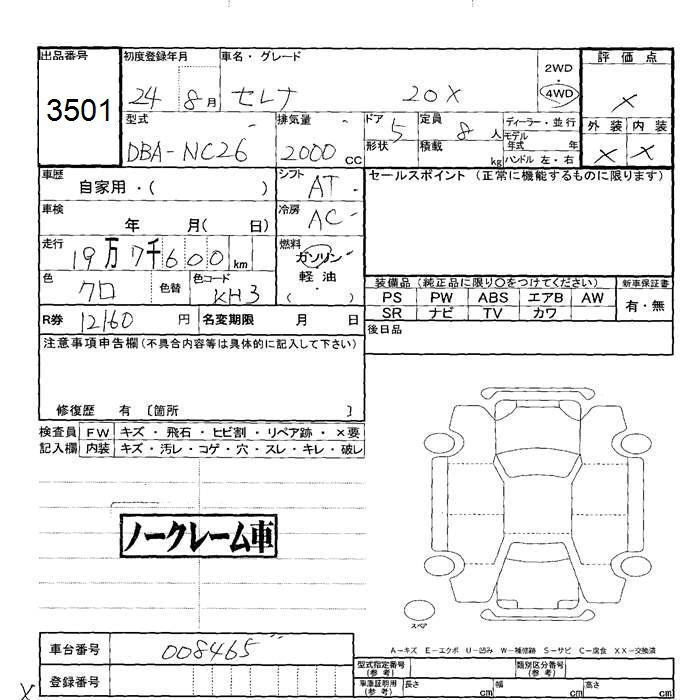 出品番号 初度登録年月 車名・グレード 2WD・4WD 評価点
3501 24 8月 セレナ 20X ×
型式 排気量 ドア 定員 ディーラー・並行 外装 内装
DBA-NC26 2000cc 5 8人 モデル年式 年 × ×
形状 積載 kg ハンドル 左・右
車歴 自家用・( ) シフト AT セールスポイント(正常に機能するものに限ります)
車検 年 月( 日) 冷房 AC
走行 19万7千600km 燃料 ガソリン・軽油・( )
色 クロ 色替 色コード KH3 装備品(純正品に限り○をつけてください) 新車保証書
PS PW ABS エアB AW 有・無
R券 12160円 名変期限 月 日 SR ナビ TV カワ
注意事項申告欄(不具合内容等は具体的に記入して下さい) 後日品
修復歴 有 〔箇所 〕
検査員 FW キズ・飛石・ヒビ割・リペア跡・×要
記入欄 内装 キズ・汚レ・コゲ・穴・スレ・キレ・破レ
ノークレーム車
スペア
A-キズ E-エクボ U-凹み W-補修跡 S-サビ C-腐食 XX-交換済
車台番号 008465 型式指定番号(参考) 類別区分番号(参考)
登録番号 車庫証明用(参考) 長さ cm 幅 cm 高さ cm
X